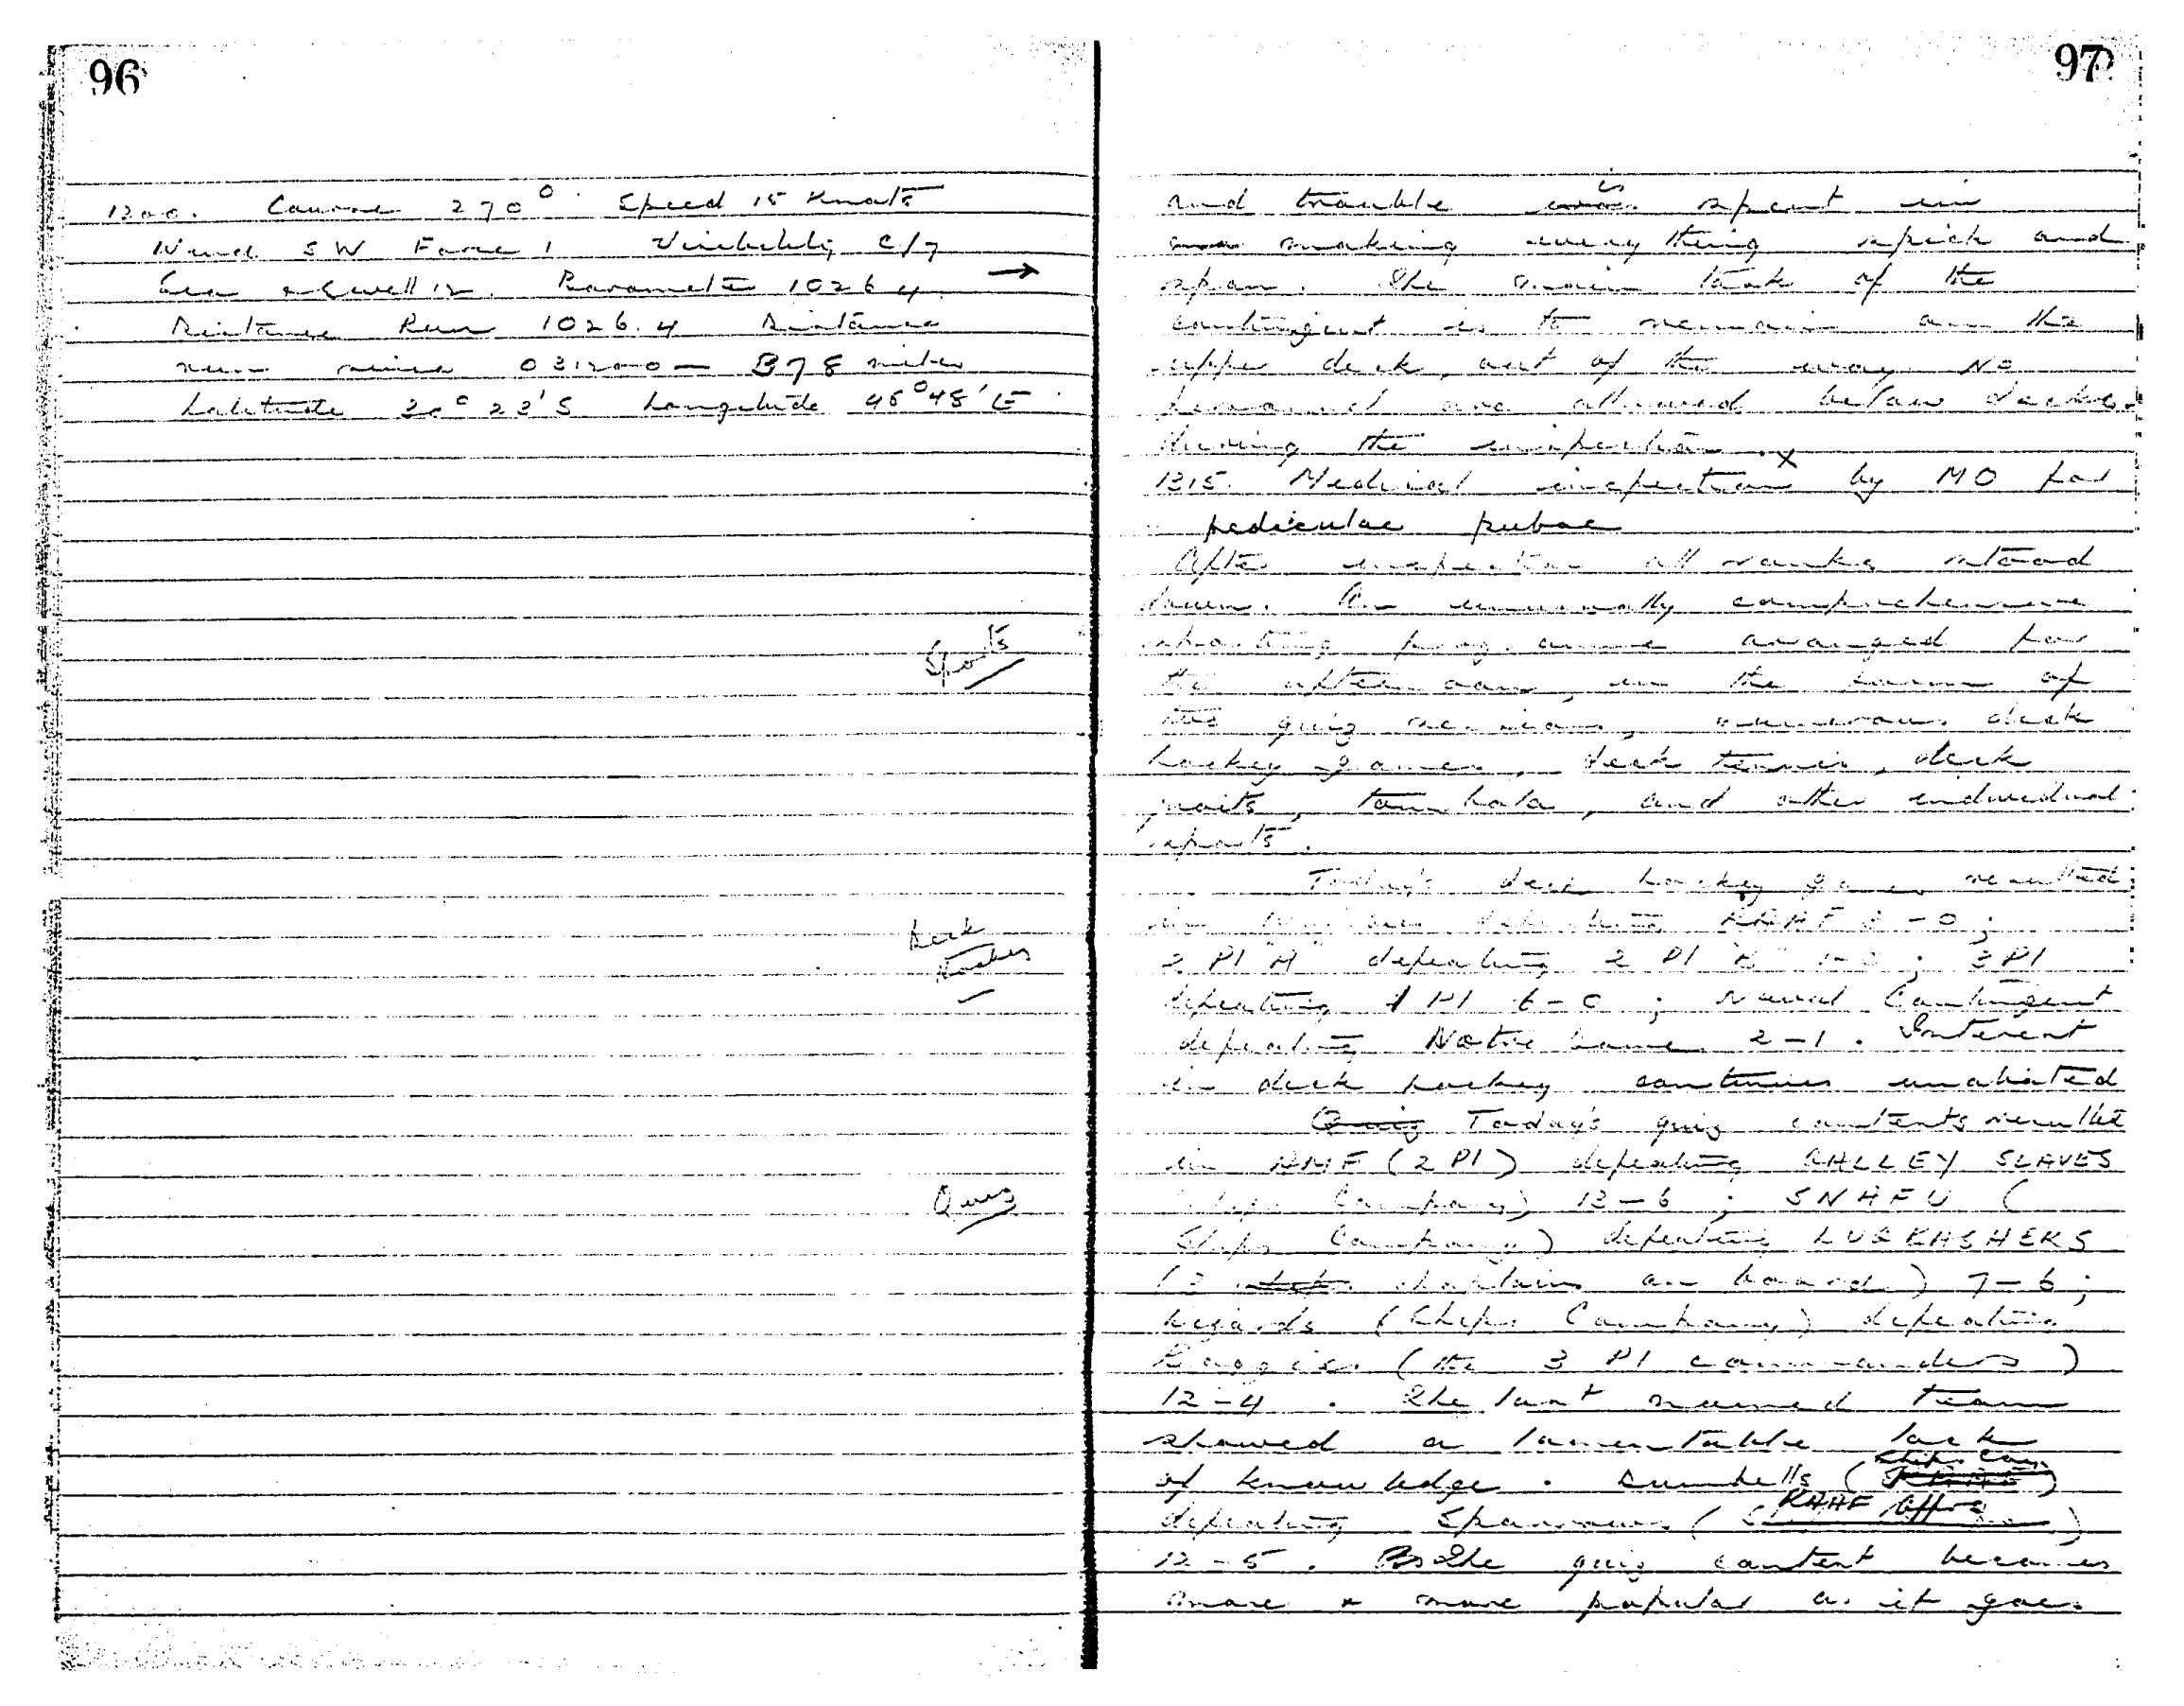 96
1200. Course 270° Speed 15 Knots
Wind SW Force 1 Visibility C/7
Sea & Swell 12. Barometer 1026.4 →
Distance Run 1026.4 Distance
run since 031200 — 378 miles
Latitude 30° 23' S Longitude 46° 48' E
Sports
Deck
Hockey
Quiz
97
and trouble is spent in
making every thing spick and
span. The main task of the
contingent is to remain on the
upper deck, out of the way. No
personnel are allowed below decks
during the inspection. x
1315. Medical inspection by MO for
pediculae pubae
After inspection all ranks stood
down. An unusually comprehensive
sporting programme arranged for
the afternoon, in the form of
the quiz sessions, numerous deck
hockey games, deck tennis, deck
quoits, tombola, and other individual
sports.
Today's deck hockey games resulted
in defeating RAAF 2-0;
2 Pl A defeating 2 Pl B 1-0; 3 Pl
defeating 1 Pl 6-0; Naval Contingent
defeating Notre Dame 2-1. Interest
in deck hockey continues unabated
Quiz Today's quiz contests resulted
in AMF (2 Pl) defeating GALLEY SLAVES
Ships Company) 13-6; SNAFU (
Ships Company) defeating LUGKASHERS
(3 chaplains on board) 7-6;
Wizards (Ships Company) defeating
(the 3 Pl commanders)
12-4. The last named team
showed a lamentable lack
of knowledge. Dumbells (Ships Coy)
defeating Sparrows (RAAF Offrs)
12-5. The quiz contest becomes
more & more popular as it goes